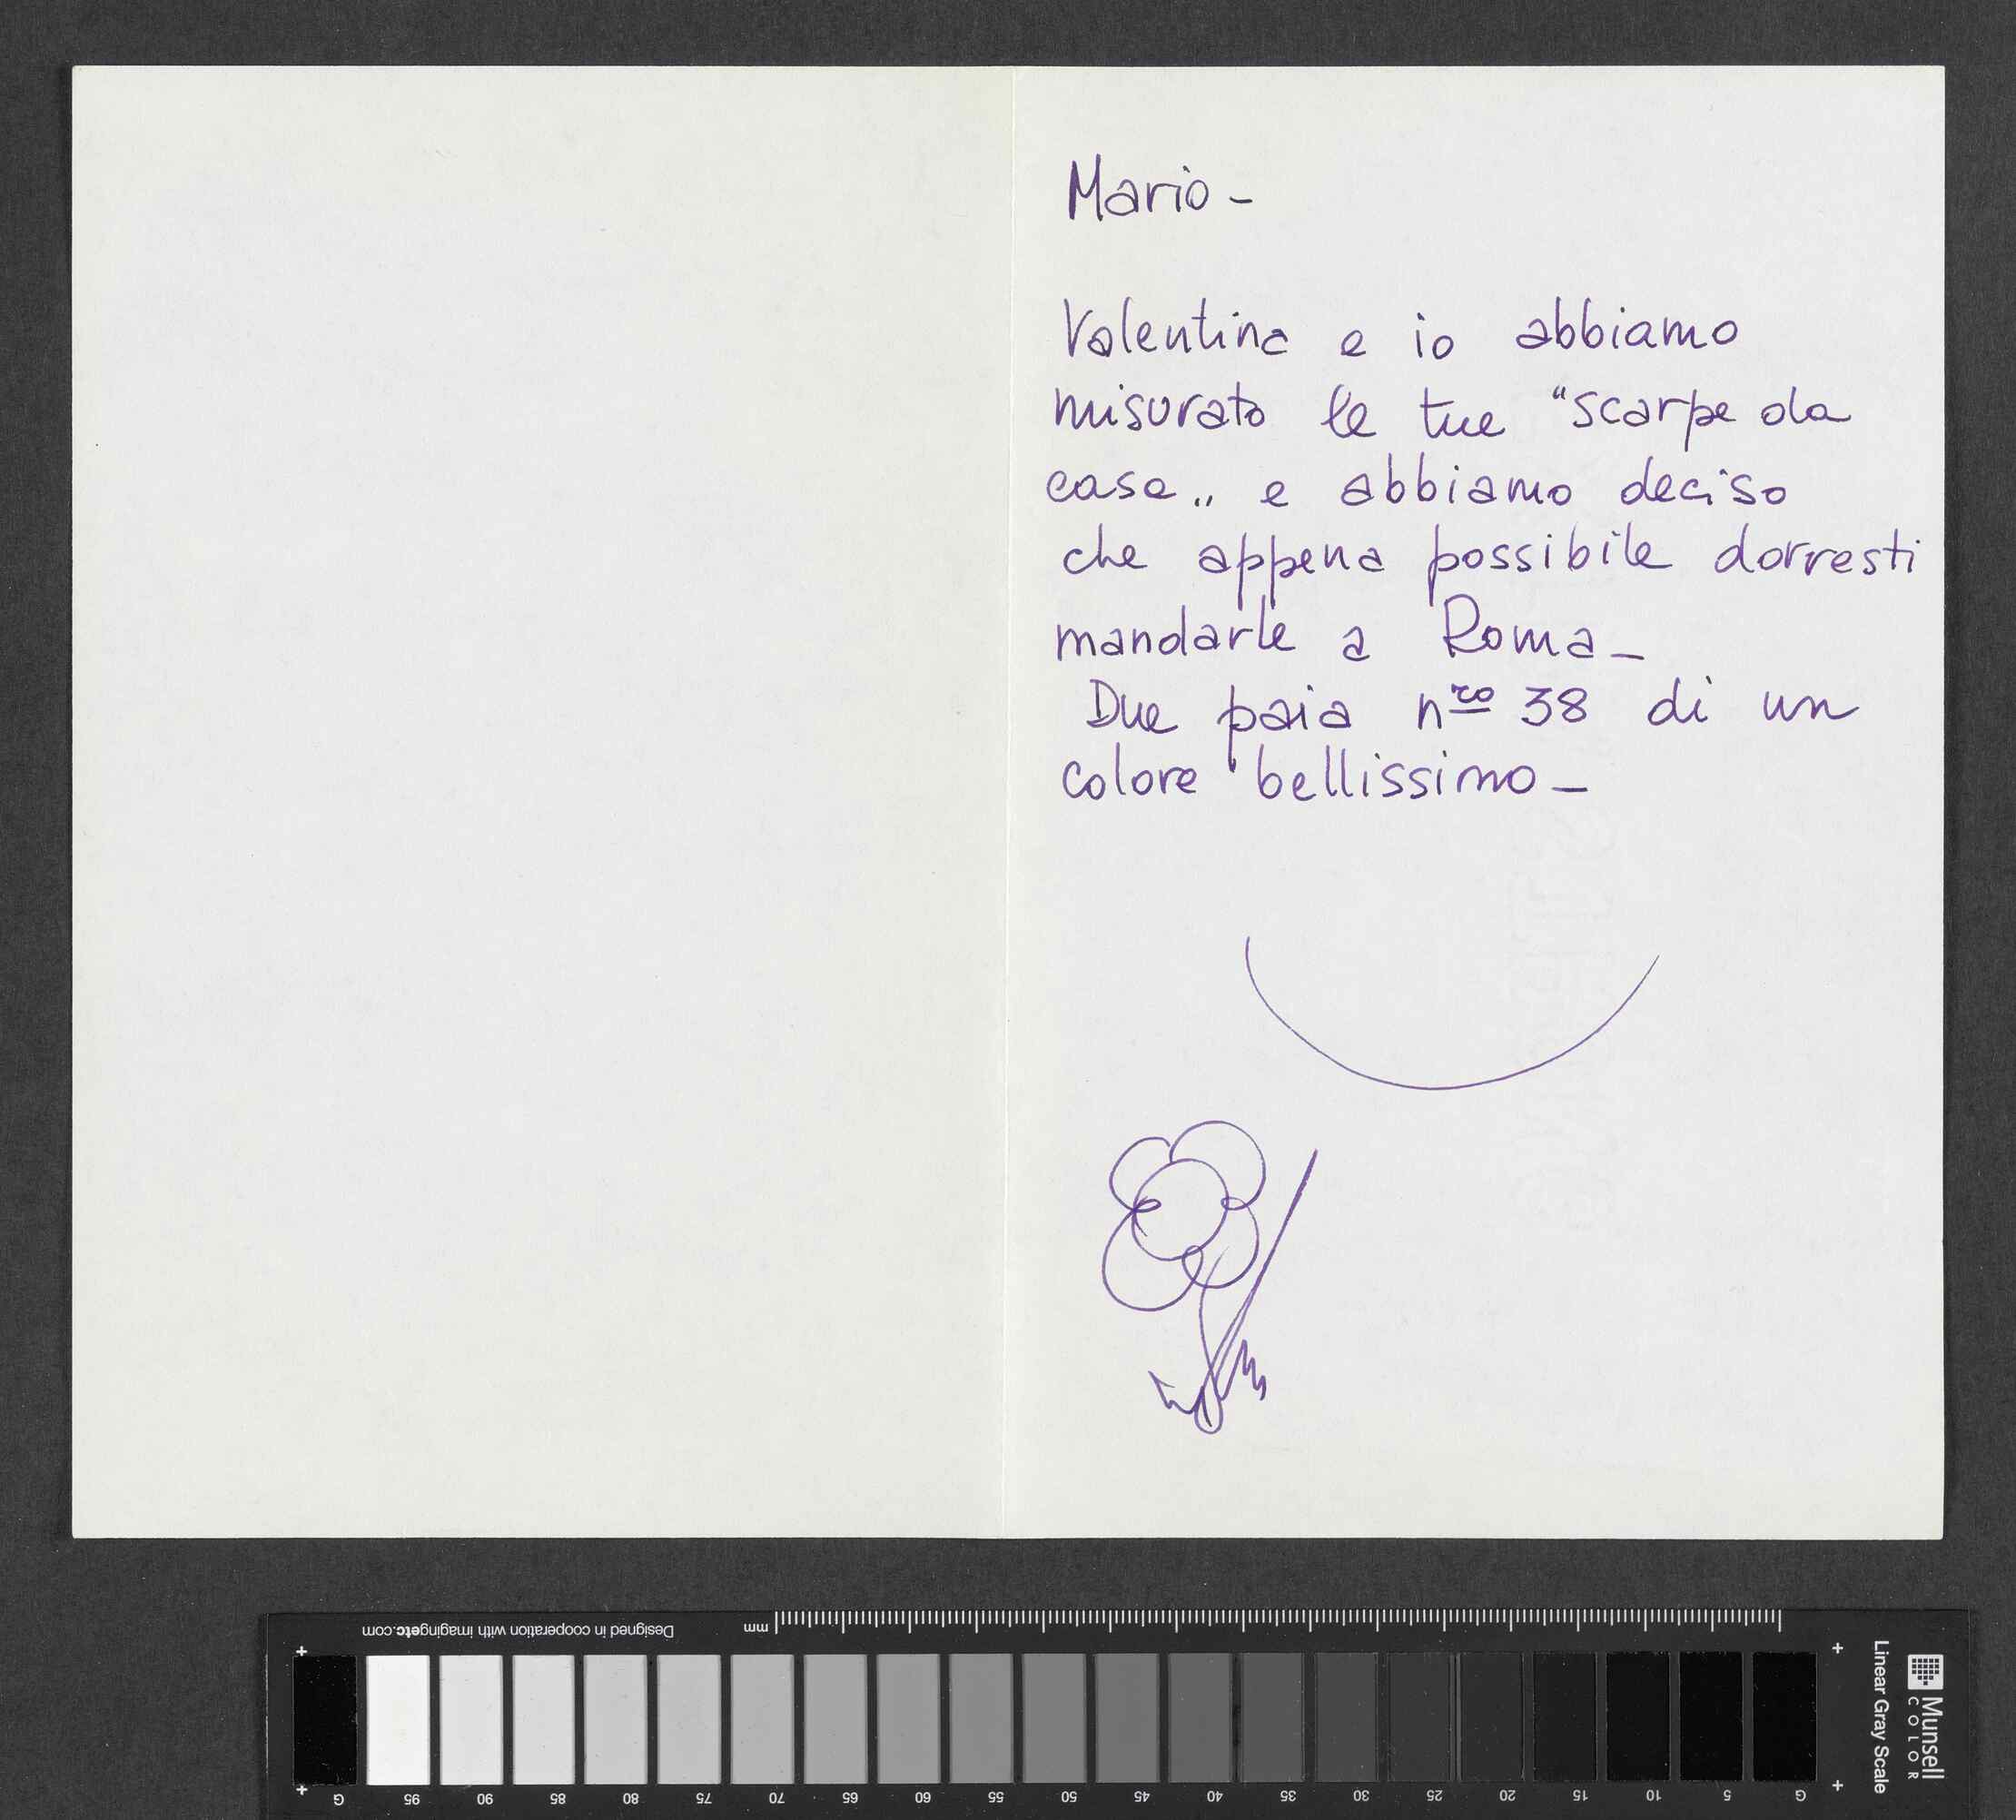 Mario -
Valentina e io abbiamo
misurato le tue "scarpe da
casa„ e abbiamo deciso
che appena possibile dovresti
mandarle a Roma -
Due paia nro 38 di un
colore bellissimo -
Designed in cooperation with imagingetc.com
mm
G 95 90 85 80 75 70 65 60 55 50 45 40 35 30 25 20 15 10 5 G
Linear Gray Scale
Munsell
COLOR